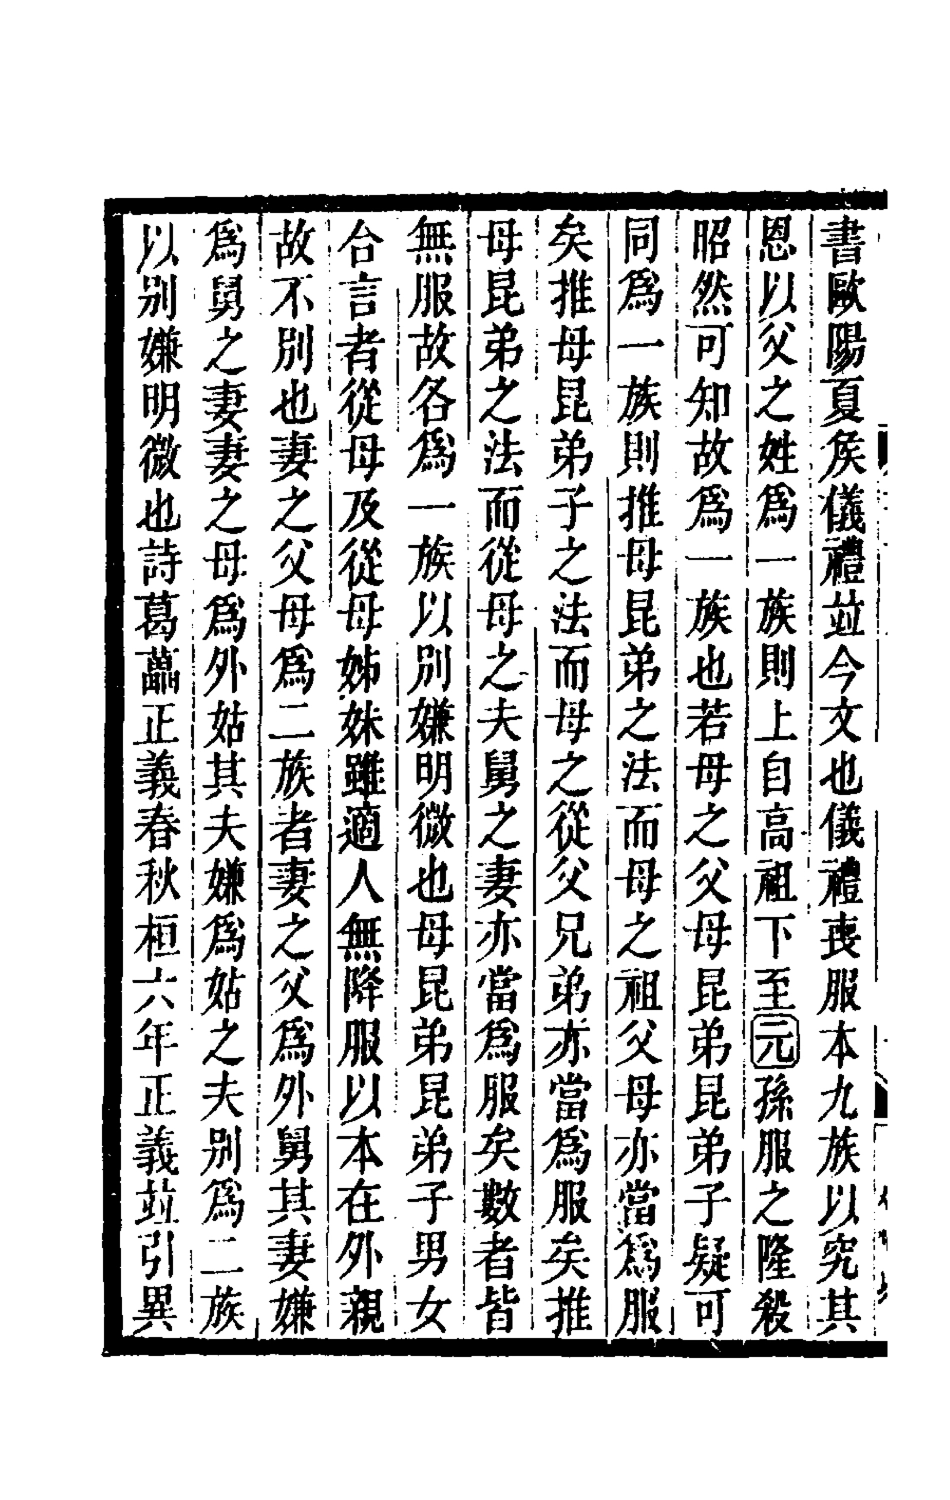 書歐陽夏矦儀禮竝今文也儀禮喪服本九族以究其
恩以父之姓爲一族則上自高祖下至元孫服之隆殺
昭然可知故爲一族也若母之父母昆弟昆弟子疑可
同爲一族則推母昆弟之法而母之祖父母亦當爲服
矣推母昆弟子之法而母之從父兄弟亦當爲服矣推
母昆弟之法而從母之夫舅之妻亦當爲服矣數者皆
無服故各爲一族以別嫌明微也母昆弟昆弟子男女
合言者從母及從母姊妹雖適人無降服以本在外親
故不別也妻之父母爲二族者妻之父爲外舅其妻嫌
爲舅之妻妻之母爲外姑其夫嫌爲姑之夫別爲二族
以別嫌明微也詩葛藟正義春秋桓六年正義竝引異